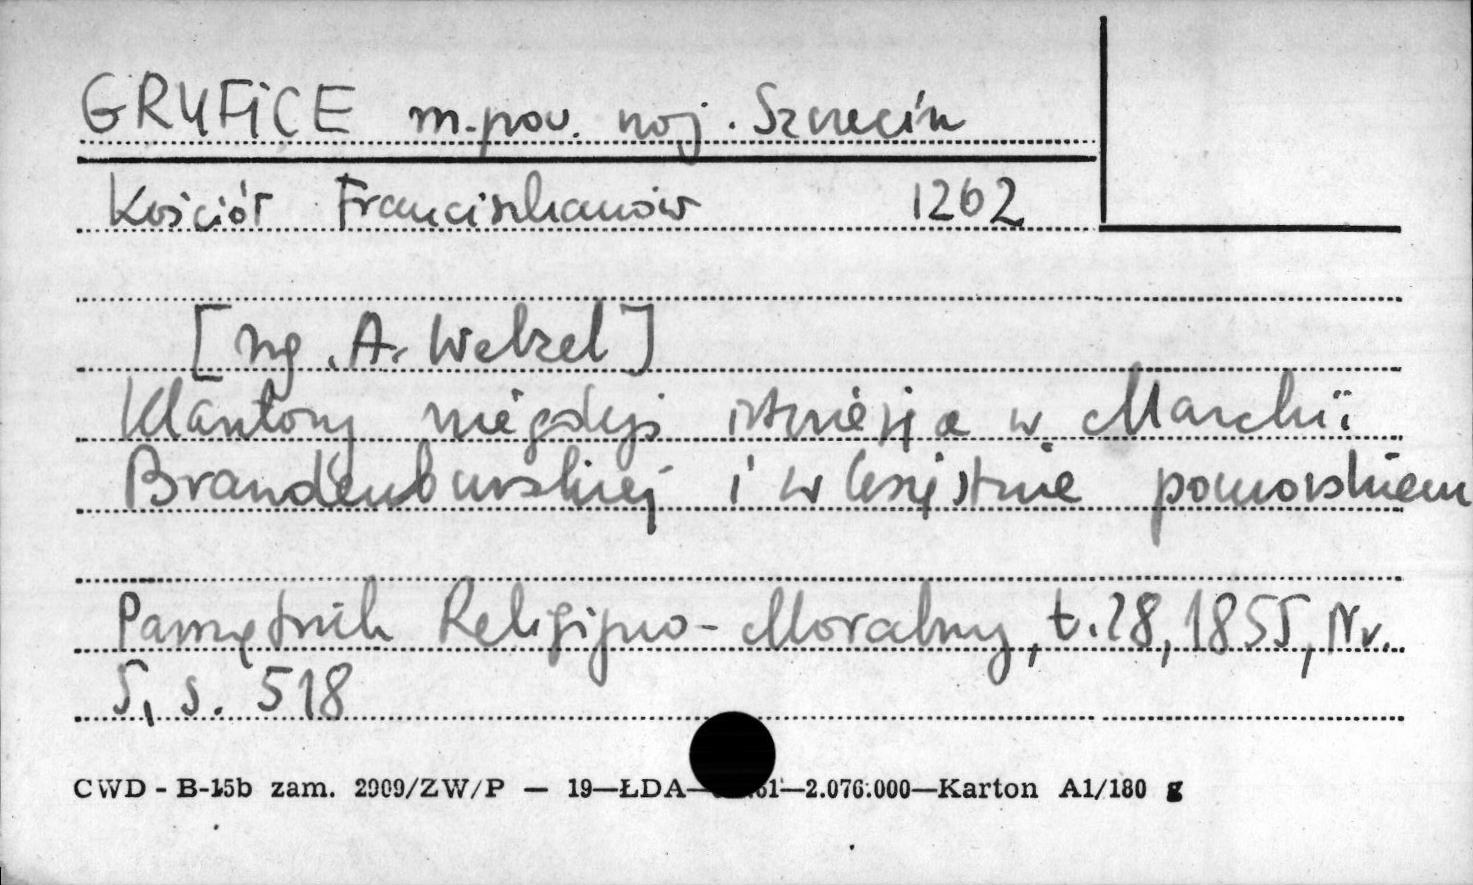 GRYFICE m. pow. woj. Szczecin
Kościół Franciszkanów 1262
[wg. A. Welzel]
Klasztory niegdyś istniejące w Marchii
Brandenburskiej i w Księstwie pomorskiem
Pamiętnik Religijno-Moralny, t. 28, 1855, Nr.
5, s. 518
CWD - B-15b zam. 2909/ZW/P — 19—ŁDA— 61—2.076.000—Karton A1/180 g